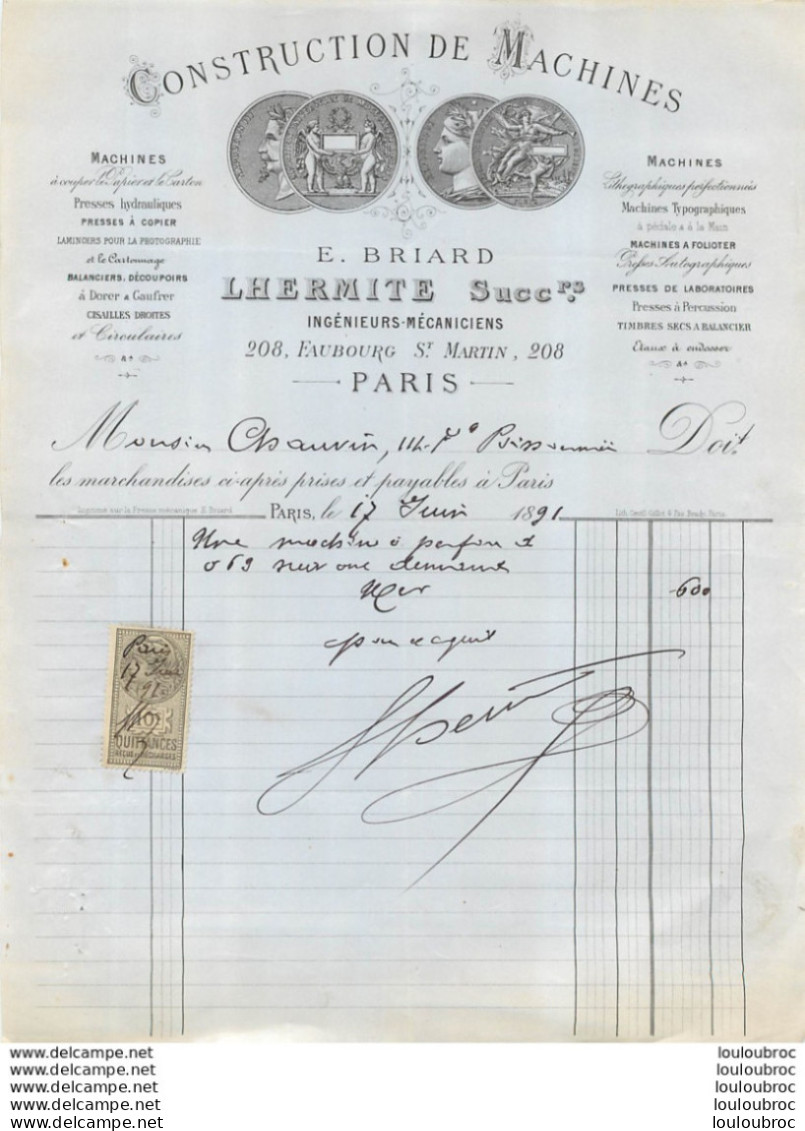 CONSTRUCTION DE MACHINES
MACHINES
à couper le Papier et le Carton
Presses hydrauliques
PRESSES À COPIER
LAMINOIRS POUR LA PHOTOGRAPHIE
et le Cartonnage
BALANCIERS, DÉCOUPOIRS
à Dorer & Gaufrer
CISAILLES DROITES
et Circulaires
MACHINES
Lithographiques perfectionnées
Machines Typographiques
à pédale & à la Main
MACHINES A FOLIOTER
Presses Autographiques
PRESSES DE LABORATOIRES
Presses à Percussion
TIMBRES SECS A BALANCIER
Etaux à endosser
E. BRIARD
LHERMITE Succrs
INGÉNIEURS-MÉCANICIENS
208, FAUBOURG ST MARTIN, 208
PARIS
Monsieur Chauvin, 114 Doit
les marchandises ci-après prises et payables à Paris
Imprimé sur la Presse mécanique E. Briard
PARIS, le 17 Juin 1891
Une machine à
0 69 sur une
600
pour acquit
Paris
17 Juin
91
10c
QUITTANCES
REÇUS ET DÉCHARGES
www.delcampe.net
www.delcampe.net
www.delcampe.net
www.delcampe.net
www.delcampe.net
louloubroc
louloubroc
louloubroc
louloubroc
louloubroc